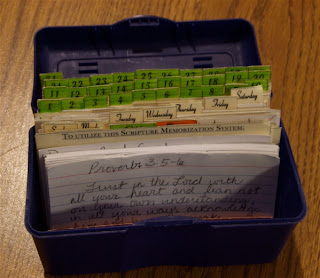 21 22 23 24 25 26 27 28
11 12 13 14 15 16 17 18 19 20
1 2 3 4
Tuesday Wednesday Thursday Friday Saturday
TO UTILIZE THIS SCRIPTURE MEMORIZATION SYSTEM:
Proverbs 3:5-6
Trust in the Lord with
all your heart and lean not
on your own understanding,
in all your ways acknowledge